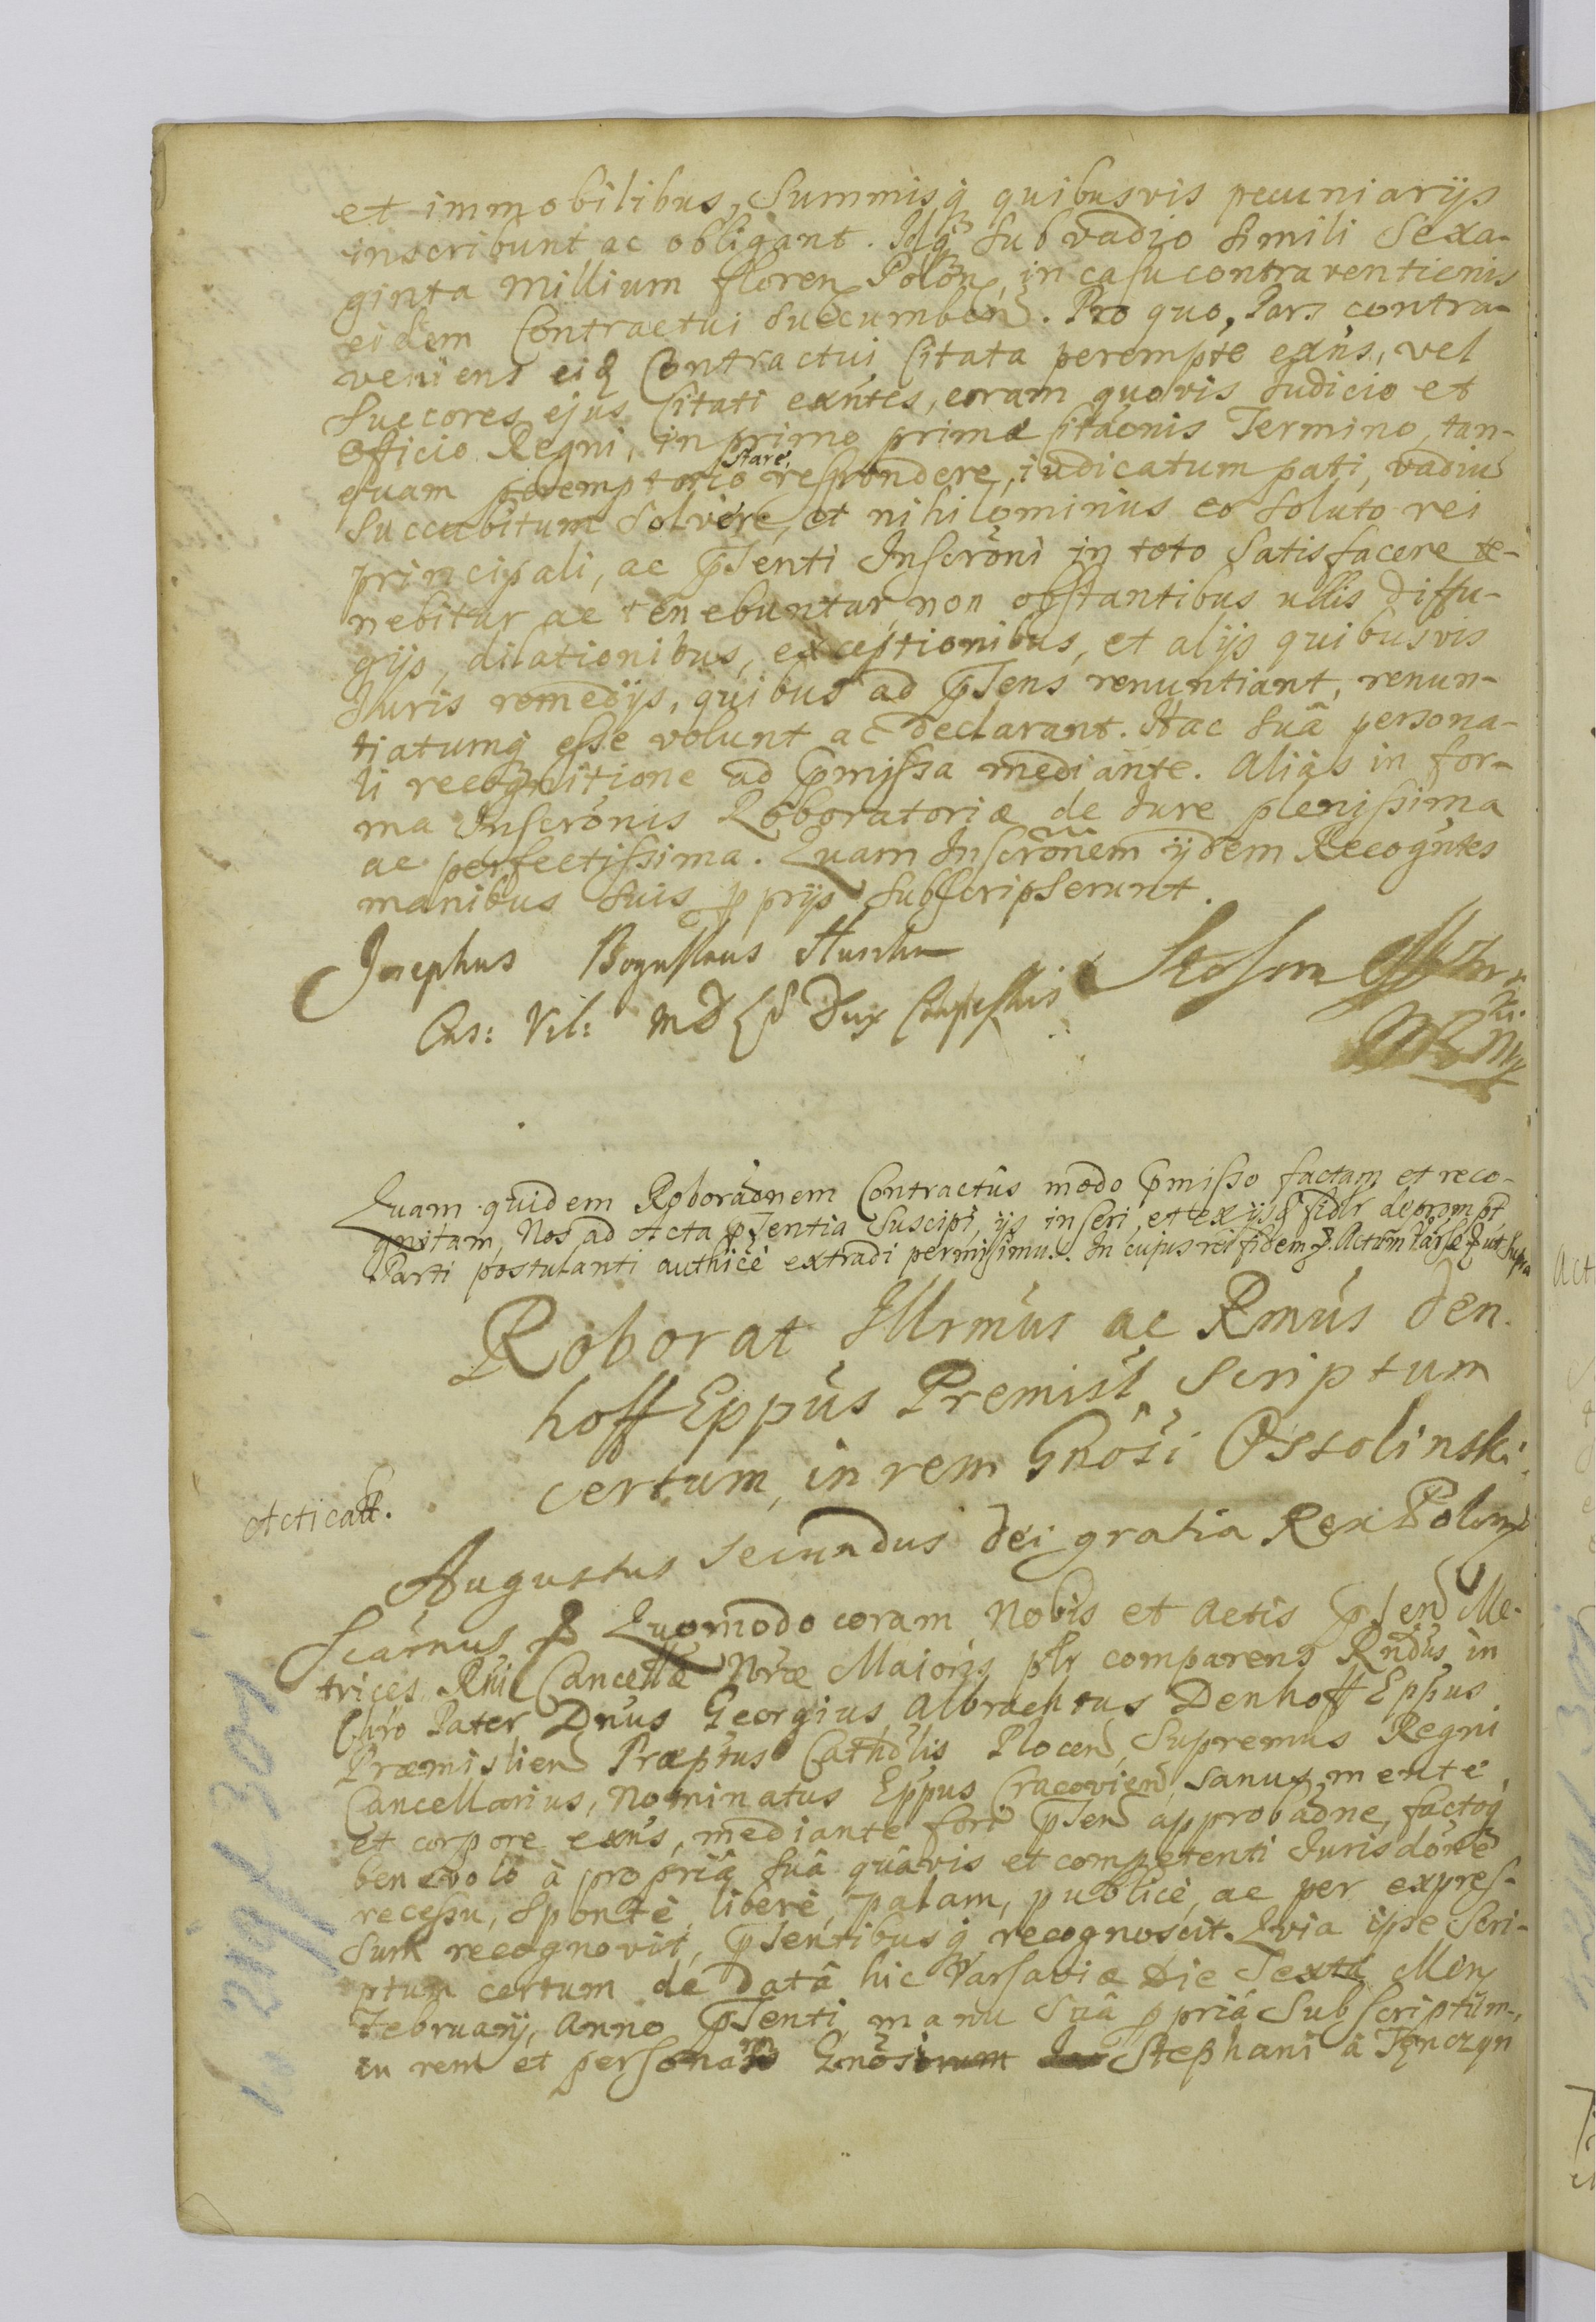 et immobilibus, Summisq́ quibusvis pecuniarijs
inscribunt ac obligant. Idq́ sub vadio simili Sexa-
ginta Millium floren Polon, in casu contraventionis
eidem Contractui succumben. Pro quo, Pars contra-
veniens eid Contractui Citata perempte exńs, vel
Succores ejus Citati exńtes, coram quovis Iudicio et
Officio Regni, in primo primæ citaonis Termino, tan-
quam peremptorio stare, respondere, iudicatum pati, vadiū
Succubitum solvere, et nihilominus eo soluto rei
principali, ac pńsenti Inscroni in toto Satisfacere te-
nebitur ac tenebuntur, non obstantibus ullis diffu-
gijs, dilationibus, exceptionibus, et alijs quibusvis
Iuris remedijs, quibus ad pńsens renuntiant, renun-
tiatumq́ esse volunt ac declarant. Hac suâ persona-
li recognitione ad pmissa mediante. Aliàs in for-
ma Inscronis Roboratoriæ de Iure plenissima
ac perfectissima. Quam Inscronem ijdem Recogntes
manibus suis pprijs subscripserunt.
Josephus Boguslaus Sluszka
Cas: Vil: MD Dux Campestris
Quam quidem Roboraonem Contractûs modo pmisso factam et reco-
gnitam, Nos ad Acta pńsentia suscipi, ijs inseri, et ex ijsd fidlr depromi
Parti postulanti authicè extradi permisimus. In cujus rei fidem &. Actum Varsæ & ut supra
Roborat Illrmus ac Rmus Den-
hoff Eppus Premisl Scriptum
certum, in rem Gnosi Ossolinski.
Acticatt.
Augustus Secundus Dei gratia Rex Polon
Scamus & Quomodo coram Nobis et Actis pńsen Me-
trices Rni Cancellæ Nræ Maioris plr comparens Rndus in
Chro Pater Dnus Georgius Albrachtus Denhoff Eppus
Præmislien Præptus Catholis Plocen, Supremus Regni
Cancellarius, Nominatus Eppus Cracovien, sanus mente
et corpore exńs, mediante fori pńsen approbaone, factoq́
benevolo à propriâ suâ quâvis et competenti Iurisdone
recessu, sponte, liberè, palam, publicè, ac per expres-
sum recognovit, pńsentibusq́ recognoscit. Quia ipse Scri-
ptum certum de Datâ hic Varsaviæ Die Sexta Men
February, Anno pńsenti, manu Suâ ppriâ Subscriptum,
in rem et personam Gnosi Stephani à Tęnczyn